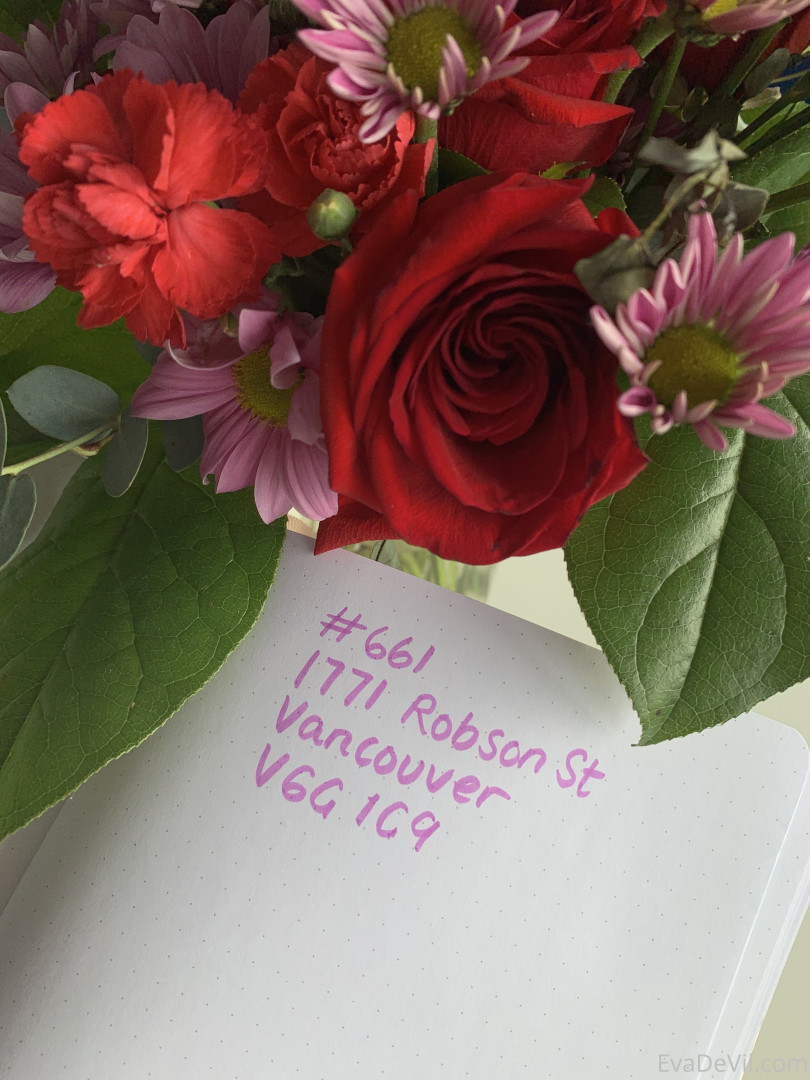 #661
1771 Robson St
Vancouver
V6G 1C9
EvaDeVil.com